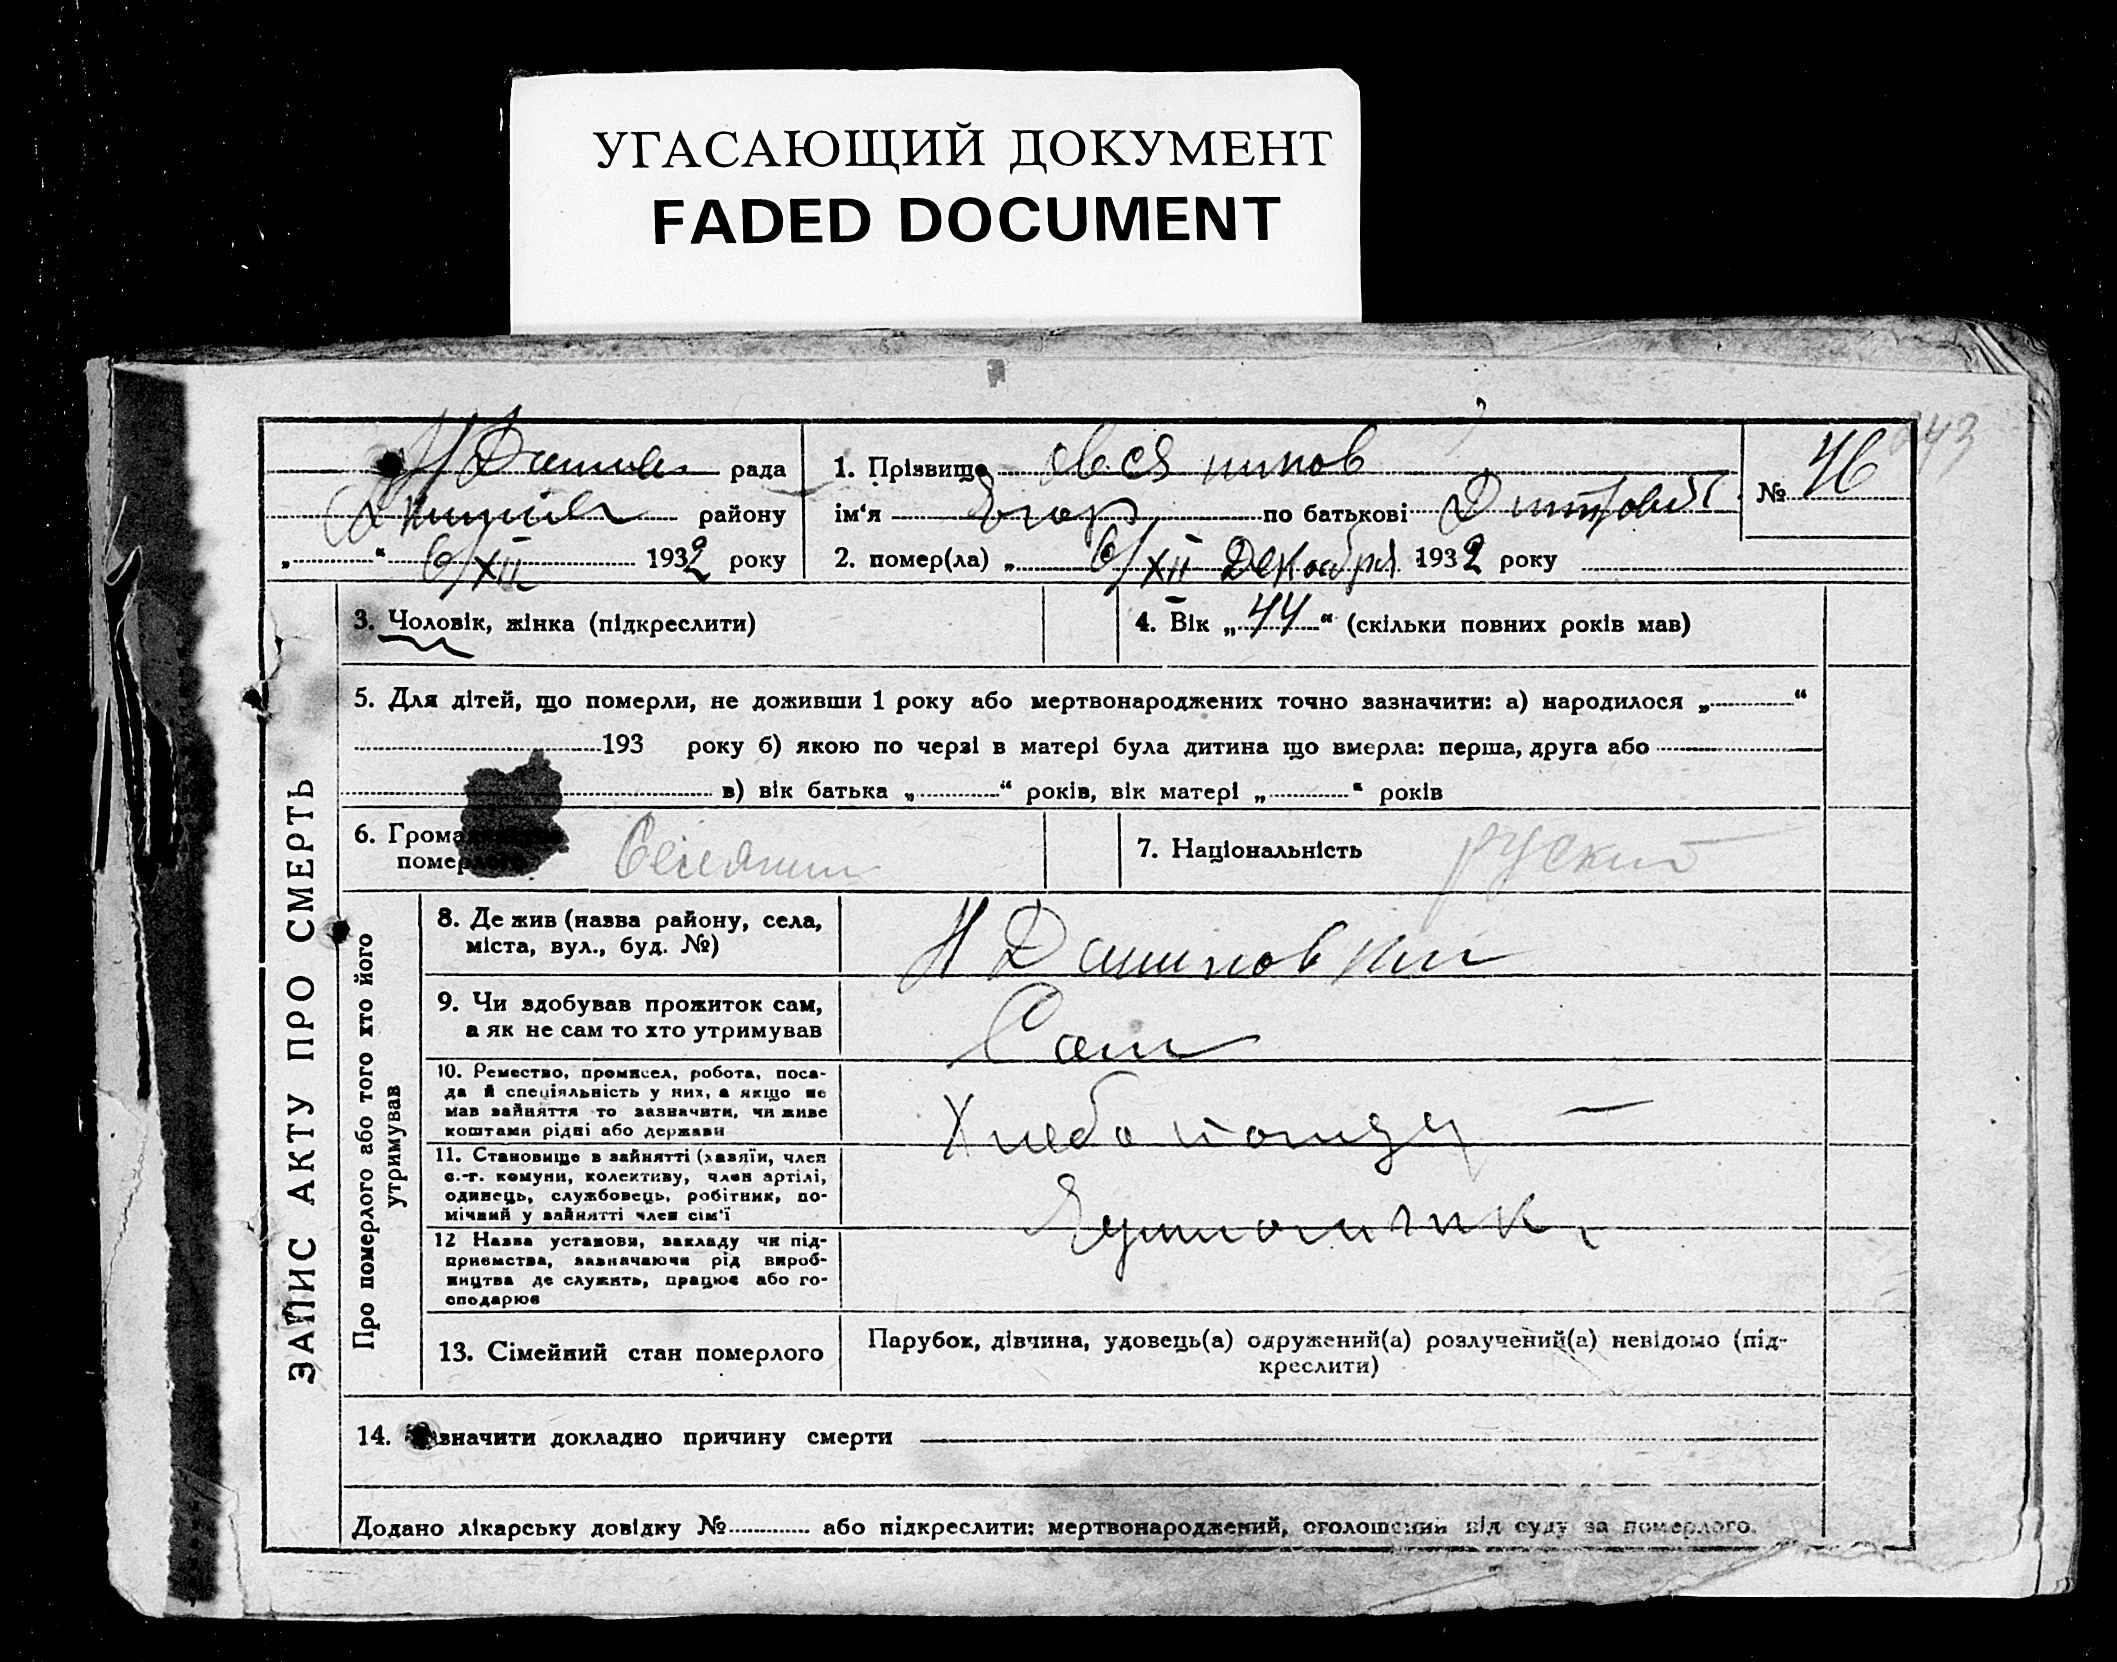 УГАСАЮЩИЙ ДОКУМЕНТ
FADED DOCUMENT
рада
району
„ “ 6/XII 1932 року
1. Прізвище Овсянников
ім‘я Егор по батькові
2. помер(ла) „ 6/XII Декабря 1932 року
№ 46
243
ЗАПИС АКТУ ПРО СМЕРТЬ
3. Чоловік, жінка (підкреслити)
4. Вік „ 44 “ (скільки повних років мав)
5. Для дітей, що померли, не доживши 1 року або мертвонароджених точно зазначити: а) народилося „ “
193 року б) якою по черзі в матері була дитина що вмерла: перша, друга або
в) вік батька „ “ років, вік матері „ “ років
6. Грома
поме
Селянин
7. Національність руский
Про померлого або того хто його
утримував
8. Де жив (назва району, села,
міста, вул., буд. №)
Н Дашковкий
9. Чи здобував прожиток сам,
а як не сам то хто утримував
Сам
10. Ремество, промисел, робота, поса-
да й спеціяльність у них, а якщо не
мав зайняття то зазначити, чи живе
коштами рідні або держави
Хлебопашец
11. Становище в зайнятті (хазяїн, член
с.-г. комуни, колективу, член артілі,
одинець, службовець, робітник, по-
мічний у зайнятті член сім‘ї
12 Назва установи, закладу чи під-
приємства, зазначаючи рід вироб-
ництва де служить, працює або го-
сподарює
13. Сімейний стан померлого
Парубок, дівчина, удовець(а) одружений(а) розлучений(а) невідомо (під-
креслити)
14. Зазначити докладно причину смерти
Додано лікарську довідку № або підкреслити: мертвонароджений, оголошений від суду за померлого.